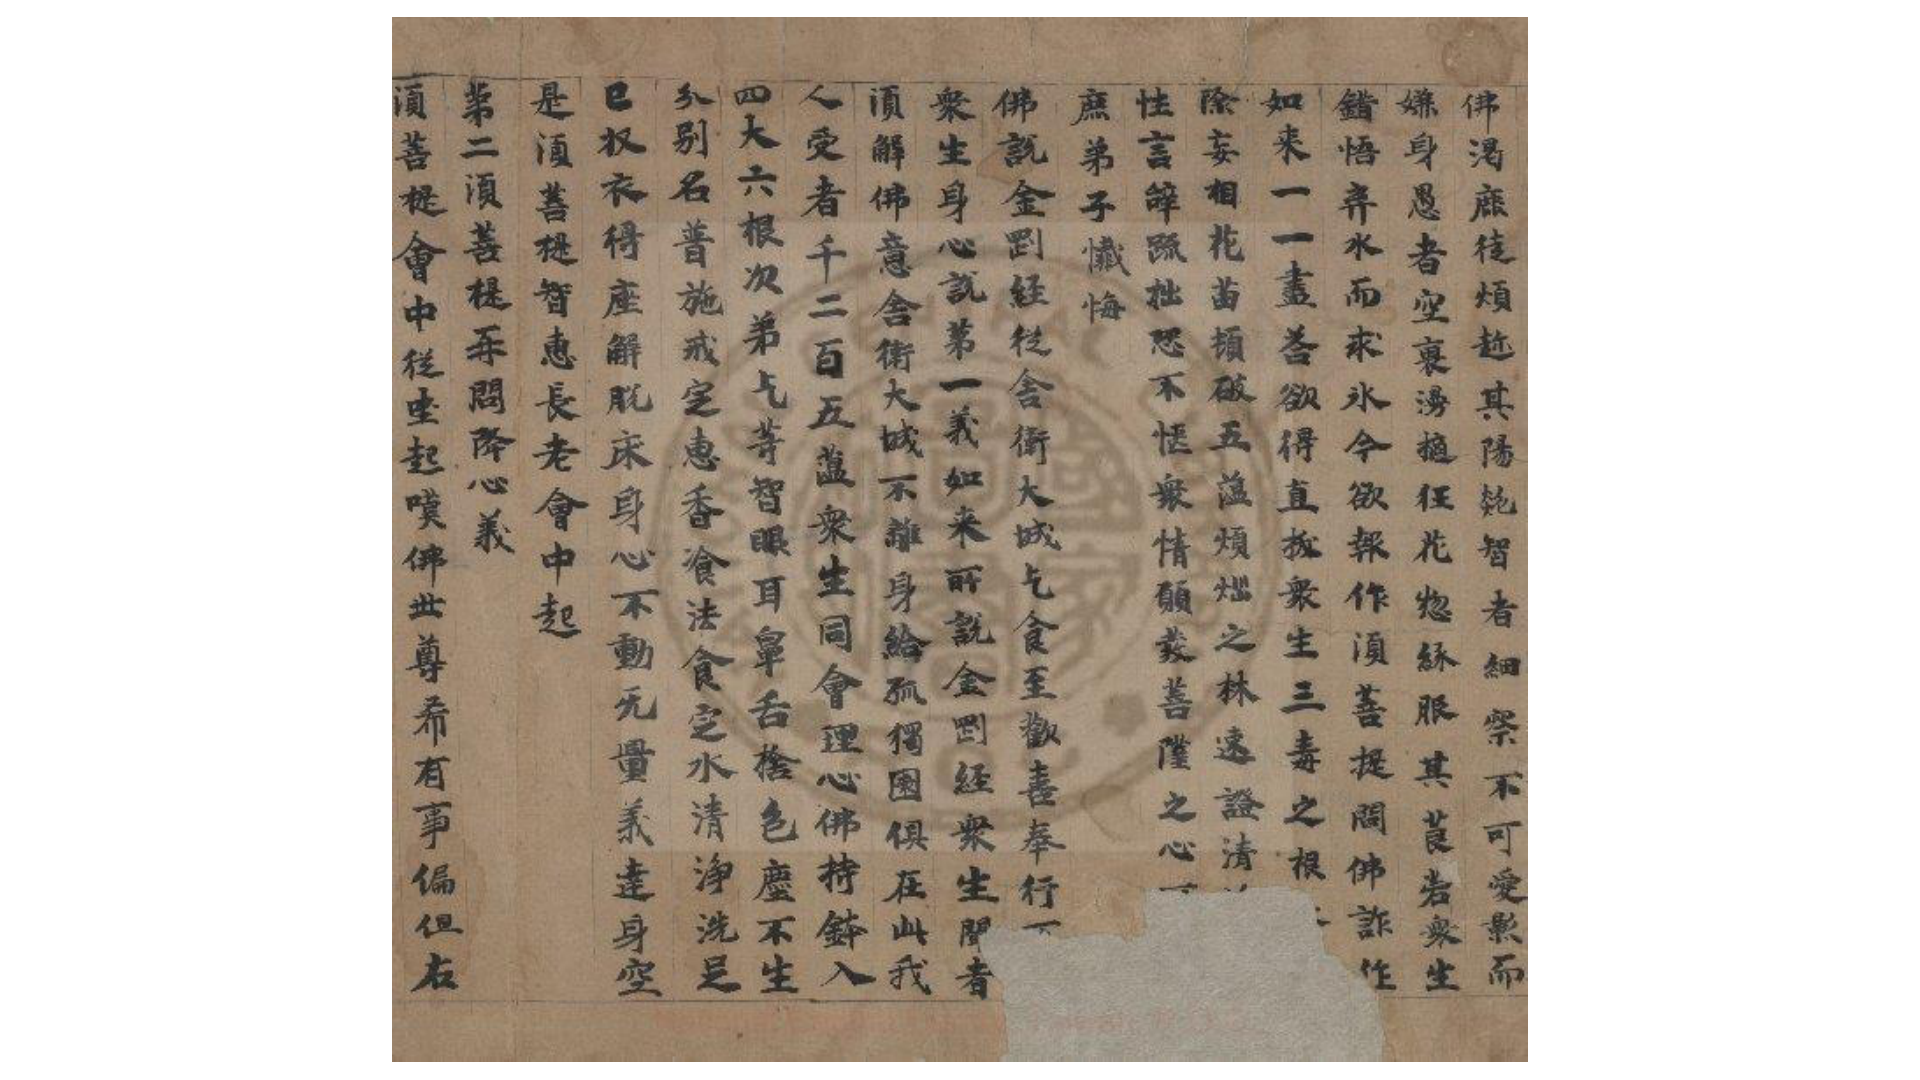 佛渴鹿徒煩趂其陽𦦨智者細察不可愛影而
嫌身愚者空裏湧摘狂花惣緣眼其莨若衆生
錯悟弃水而求氷今欲報作湏菩提問佛詐作
如来一一盡荅欲得直拔衆生三毒之根
除妄相花苗頓破五蕰煩惱之林速證清
性言辝踈拙恐不愜衆情願發菩隡之心
庶弟子懴悔
佛説金罰経従舎衛大城乞食至歡喜奉行
衆生身心説苐一義如来所説金罰経衆生聞者
湏解佛意舎衛大城不離身給孤獨園俱在此我
人受者千二百五蕰衆生同會理心佛持鉢入
四大六根次弟乞等智眼耳鼻舌捨色塵不生
分别名普施戒定惠香飡法食定水清淨洗足
已収衣得座解脱床身心不動无量義達身空
是湏菩提智惠長老會中起
苐二湏菩提再問降心義
湏菩提會中従坐起嘆佛世尊希有事偏但右